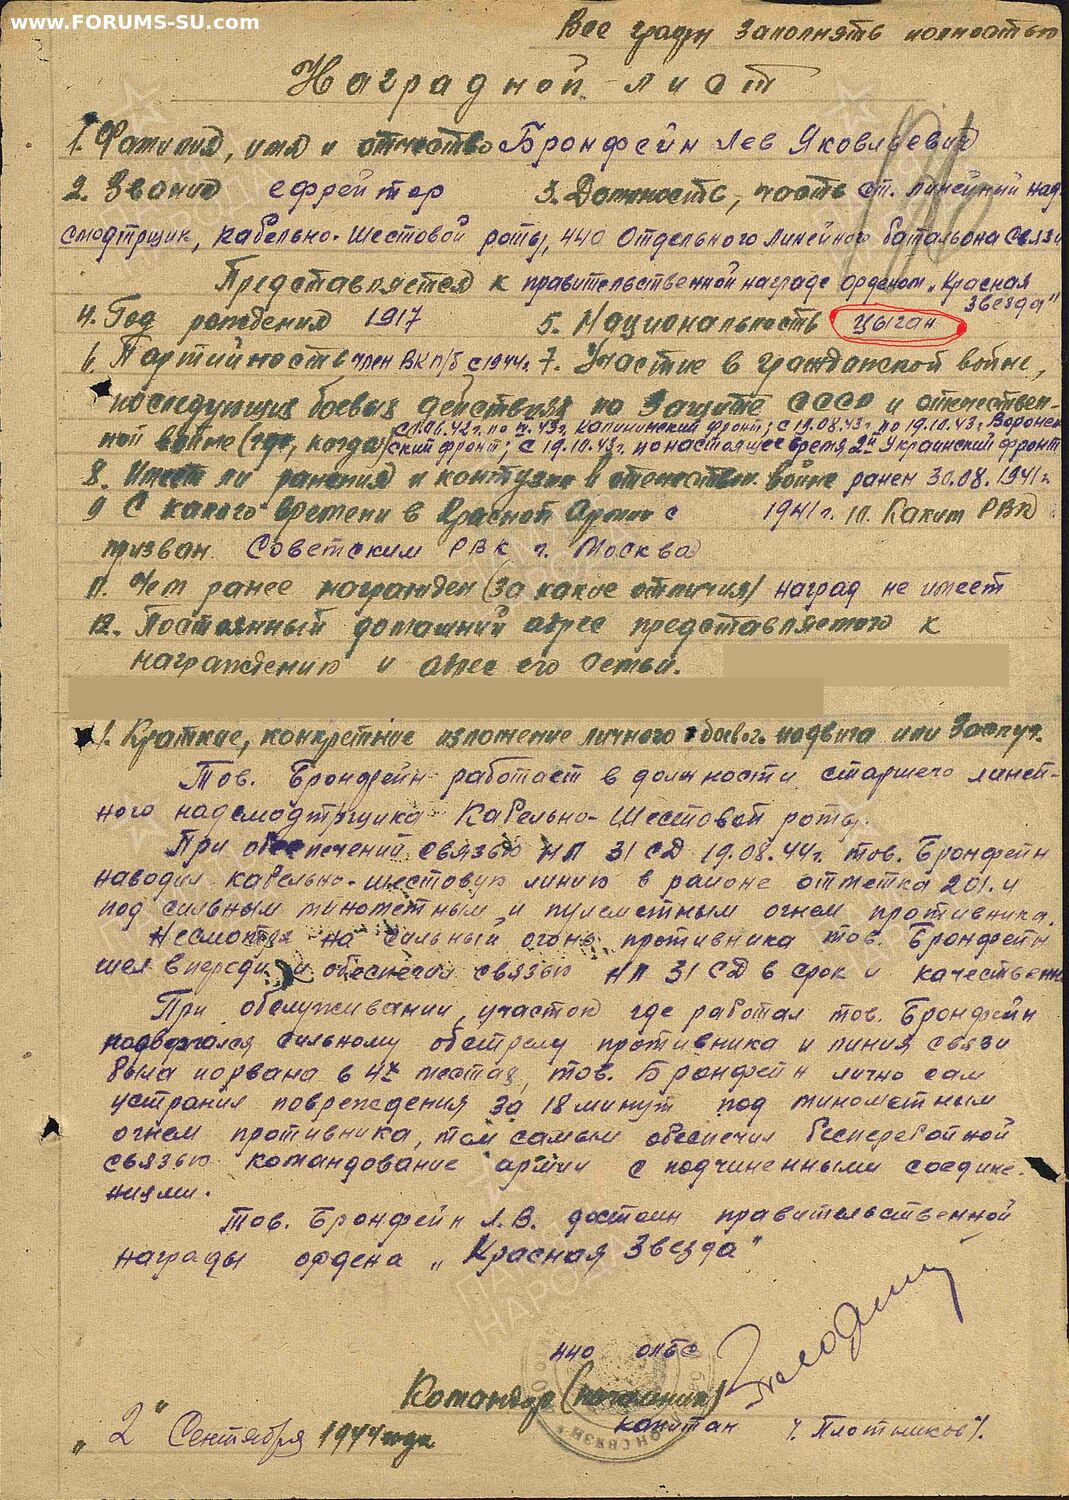 www.FORUMS-SU.com
Все графы заполнять полностью
Наградной лист
1. Фамилия, имя и отчество Бронфейн Лев Яковлевич
2. Звание ефрейтор 3. Должность, часть ст. линейный над
смодтрщик, Кабельно-Шестовой роты, 440 Отдельного Линейного батальона Связи
Представляется к правительственной награде орденом „Красная
Звезда"
4. Год рождения 1917 5. Национальность Цыган
6. Партийность член ВКП/б с 1944г. 7. Участие в гражданской войне,
последующих боевых действиях по защите СССР и отечествен-
ной войне (где, когда) 42г. по 43г. Калининский фронт; с 19.08.43г по 19.10.43г. Воронеж
ский фронт; с 19.10.43г. по настоящее время 2й Украинский фронт
8. Имеет ли ранения и контузии в отечествен. войне ранен 30.08.1941г.
9 С какого времени в Красной Армии с 1941г. 10. Каким РВК
призван Советским РВК г. Москва
11. Чем ранее награжден (за какие отличия) наград не имеет
12. Постоянный домашний адрес представляемого к
награждению и адрес его семьи.
1. Краткие, конкретное изложение личного боевог. подвига или Заслуг.
Тов. Бронфейн работает в должности старшего линей-
ного надсмодтрщика Кабельно-Шестовой роты.
При обеспечений связью НП 31 СД 19.08.44г. тов. Бронфейн
наводил кабельно-шестовую линию в районе отметка 201.4
под сильным минометным и пулеметным огнем противника.
Несмотря на сильный огонь противника тов. Бронфейн
шел впереди и обеспечил связью НП 31 СД в срок и качественн
При обслуживании, участок где работал тов. Бронфейн
подвергался сильному обстрелу противника и линия связи
была порвана в 4х местах, тов. Бронфейн лично сам
устранил повреждения за 18 минут под минометным
огнем противника, тем самым обеспечил бесперебойной
связью командование армии с подчиненными соедине-
ниями.
Тов. Бронфейн Л.В. достоин правительственной
награды ордена „Красная Звезда"
440 ОЛБС
Командир (начальник)
капитан /. Плотников/.
„2" Сентября 1944 года